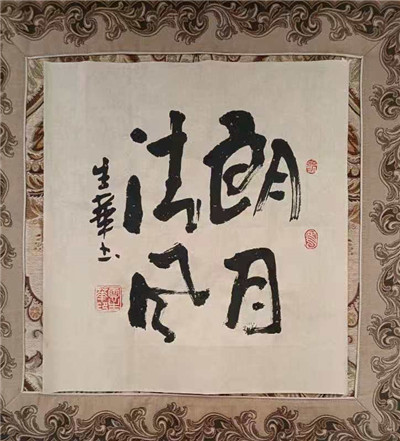 朗月
清风
生華书